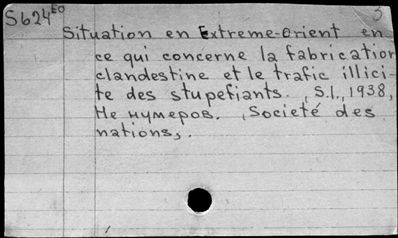 S624EO 5
Situation en Extreme-Orient en
ce qui concerne la fabrication
clandestine et le trafic illici-
te des stupefiants. S.l., 1938,
Не нумеров. Societé des
nations,.